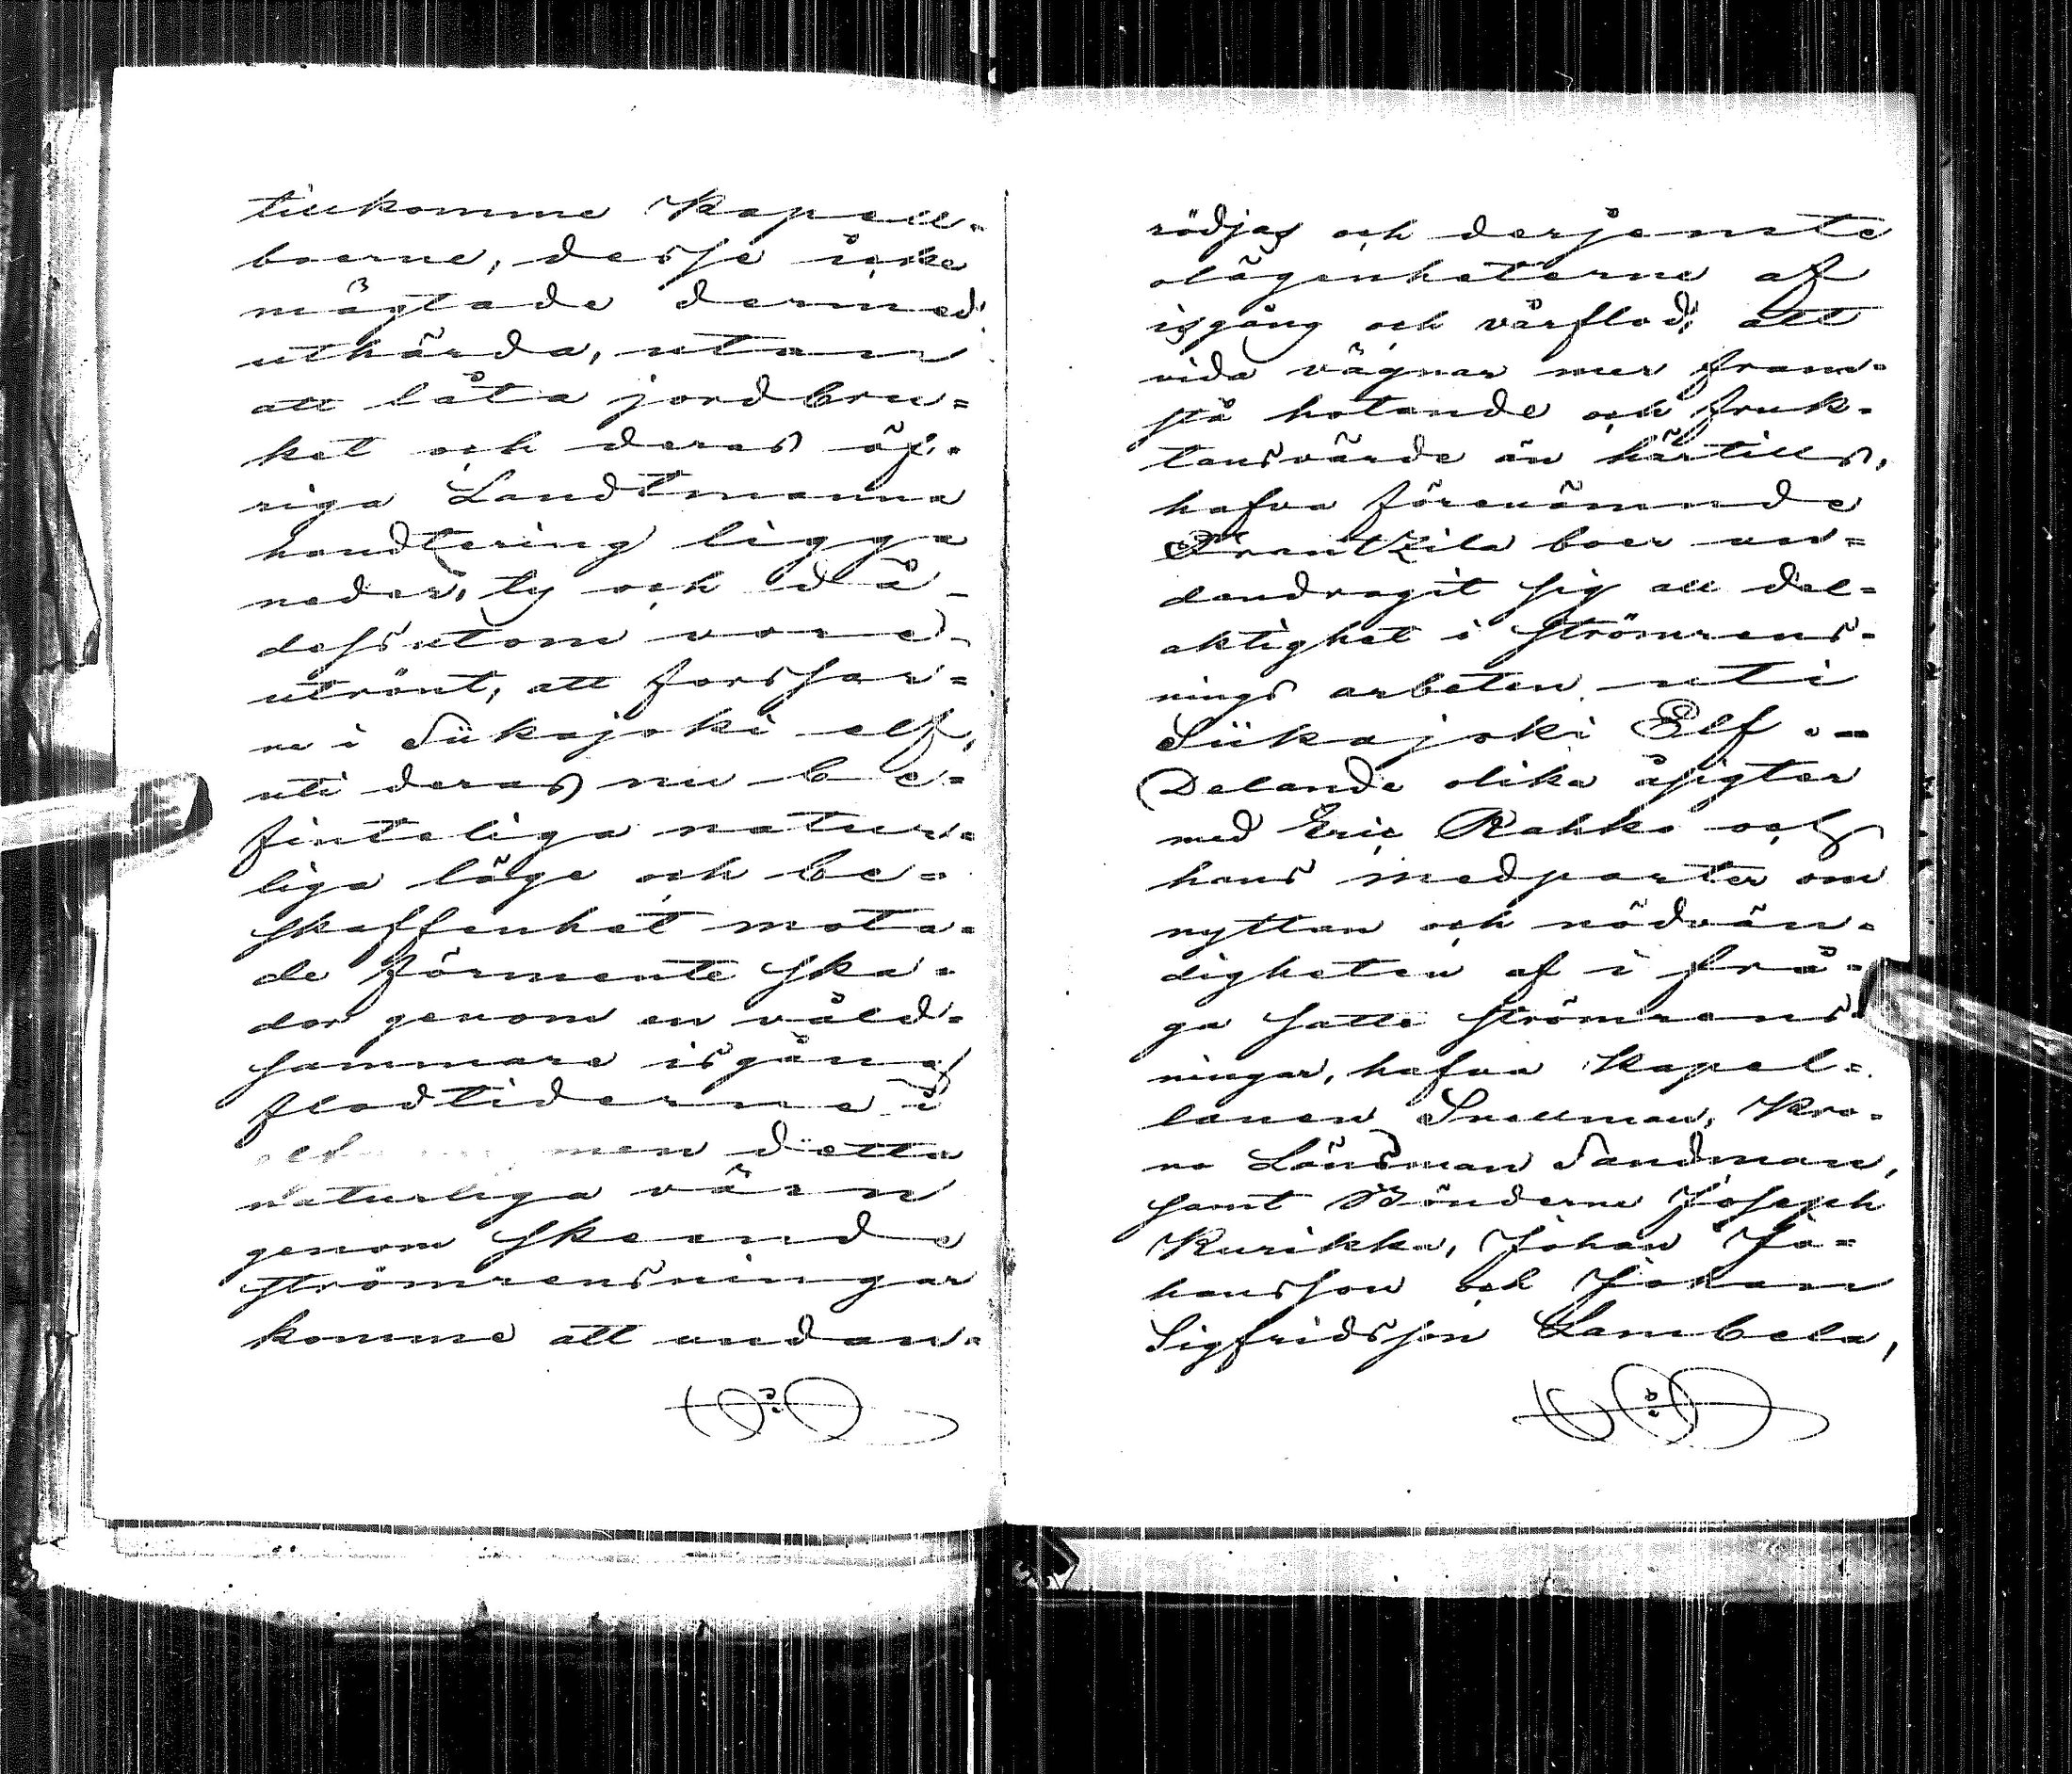 tillkomme Kapell-
boerne, desse icke
mägtade dermed
uthärda, utan
att låta jordbru=
ket och deras öf-
riga Landtmanna
handtering ligga
neder, ty och då
dessutom vore
utrönt, att forssar=
ne i Siikajoki elf,
uti deras nu be=
finteliga natur-
liga läge och be=
skaffenhet mota-
de förmente ska-
dor genom en våld-
sammare isgång
flodtiderne i
men detta
naturliga värn
genom skeende
strömrensningar
komme att undan-
rödjas och derjemte
olägenheterne af
isgång och vårflod, allt
vida vägnar mer fram-
stå hotande och fruk-
tansvärde än härtills,
hafva förenämnde
Frantzila boer un=
dandragit sig all del=
aktighet i strömrens-
nings arbeten uti
Siikajoki Elf.—
Delande olika åsigter
med Eric Rahko och
hans medparter om
nyttan och nödvän-
digheten af i frå-
ga satte strömrens-
ningar, hafva Kapel=
lanen Snellman, Kro-
no Länsman Sandman,
samt Bönderne Joseph
Kurikka, Johan Jo=
hansson och Johan
Sigfridsson Lambela,